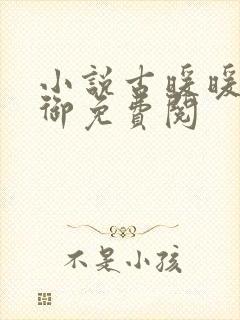 小說古暖暖
御免費閱
不是小孩